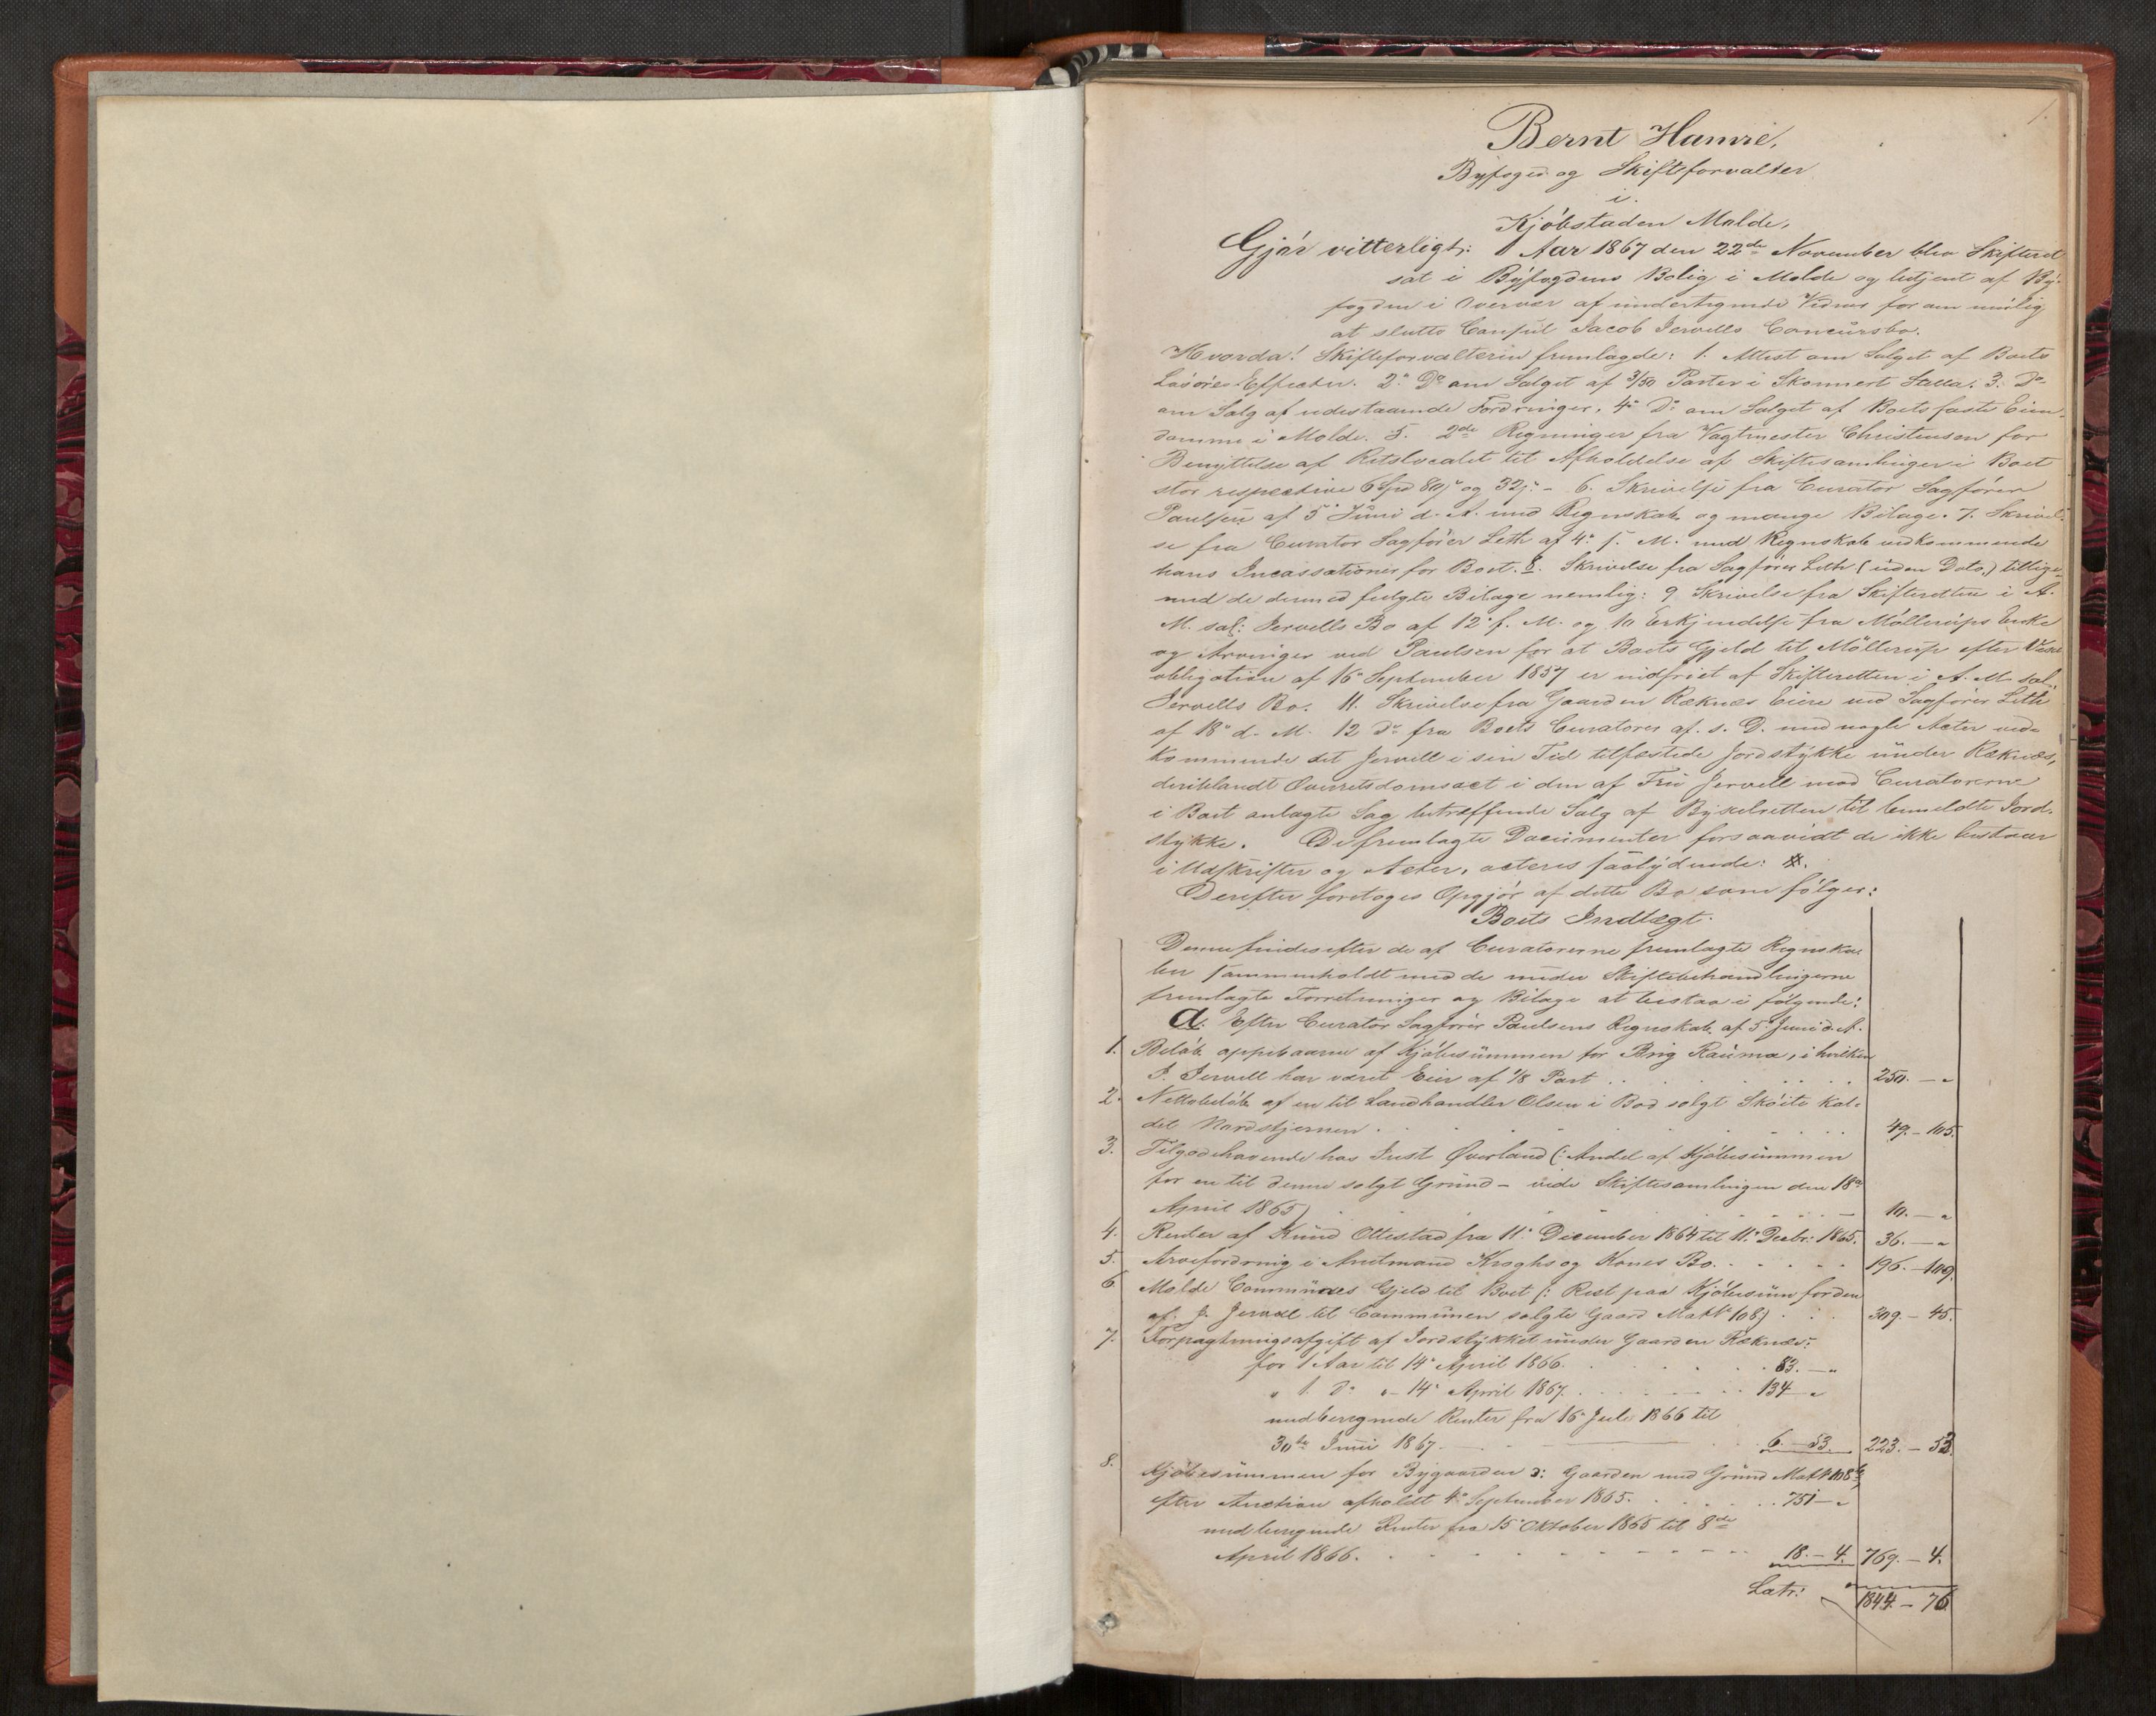 1.
Bernt Hamre,
Byfoged og Skifteforvalter
i
Kjöbstaden Molde,
Gjör vitterligt: Aar 1867 den 22de November blev Skifteret
sat i Byfogdens Bolig i Molde og betjent af By-
fogden i Overvær af undertegnede Vidner for om mulig
at slutte Consul Jacob Jervells Concursbo.
Hvorda! Skifteforvalteren fremlagde: 1. Attest om Salget af Boets
Lösöre Effecter. 2° Do om Salget af 3/50 Parter i Skonnert Stella. 3. Do
om Salg af udestaaende Fordringer. 4° Do om Salget af Boets faste Eien-
domme i Molde. 5. 2de Regninger fra Vagtmester Christensen for
Benyttelse af Retslocalet til Afholdelse af Skiftesamlinger i Boet
stor respective 6 Spd 80 s og 32 s. - 6. Skrivelse fra Curator Sagförer
Paulsen af 5 Juni d. A. med Regnskab og mange Bilage. 7. Skrivel-
se fra Curator Sagförer Leth af 4° f. M. med Regnskab vedkommende
hans Incassationer for Boet. 8. Skrivelse fra Sagförer Leth (uden Dato,) tillige-
med de dermed fulgte Bilage nemlig: 9 Skrivelse fra Skifteretten i A.
M. sal: Jervells Bo af 12° f. M. og 10 Erkjendelse fra Möllerups Enke
og Arvinger ved Paulsen for at Boets Gjeld til Möllerup efter
obligation af 16° September 1857 er indfriet af Skifteretten i A. M. sal.
Jervells Bo. 11. Skrivelse fra Gaarden Reknæs Eiere ved Sagförer Leth
af 18° d. M. 12 Do fra Boets Curatorer af s. D. med nogle Acter ved-
kommende det Jervell i sin Tid tilfæstede Jordstykke under Reknæs,
deriblandt Overretsdomsact i den af Fru Jervell mod Curatorerne
i Boet anlagte Sag betræffende Salg af Bygselretten til bemeldte Jord-
stykke. De fremlagte Documenter forsaavidt de ikke bestaar
i Udskrifter og Acter, acteres saalydende: #.
Derefter foretoges Opgjör af dette Bo som fölger:
Boets Indtægt.
Denne findes efter de af Curatorerne fremlagte Regnska-
ber sammenholdt med de under Skiftebehandlingerne
fremlagte Forretninger og Bilage at bestaa i fölgende:
a. Efter Curator Sagförer Paulsens Regnskab af 5 Juni d. A.
1. Belöb oppebaaren af Kjöbesummen for Brig Rauma, i hvilken
J. Jervell har været Eier af 1/8 Part . . . 250. — "
2. Nettobelöb af en til Landhandler Olsen i Bod solgt Sköite kal-
det Nordstjernen . . . 49. – 105.
3. Tilgodehavende hos Just Överland (: Andel af Kjöbesummen
for en til denne solgt Grund – vide Skiftesamlingen den 18de
April 1865) . . . 10. — "
4. Renter af Knud Ottestad fra 11° December 1864 til 11° Decbr: 1865. 36. — "
5. Arvefordring i Amtmand Kroghs og Kones Bo. . . . 196. – 109.
6. Molde Communes Gjeld til Boet (: Rest paa Kjöbesum for den
af J. Jervell til Communen solgte Gaard Matr 108.) . . . 309. – 45.
7. Forpagtningsafgift af Jordstykket under Gaarden Reknæs:
for 1 Aar til 14° April 1866. . . . 83. — "
" 1. Do " – 14° April 1867. . . . 134 — "
medberegnede Renter fra 16° Juli 1866 til
30te Juni 1867. . . . 6. – 53. 223. – 53.
8. Kjöbesummen for Bygaarden ɔ: Gaarden med Grund Matr 108 b,
efter Auction afholdt 4° September 1865. . . . 751 — "
medberegnede Renter fra 15° Oktober 1865 til 8de
April 1866. . . . 18. – 4. 769. – 4.
Latr: 1844. – 76